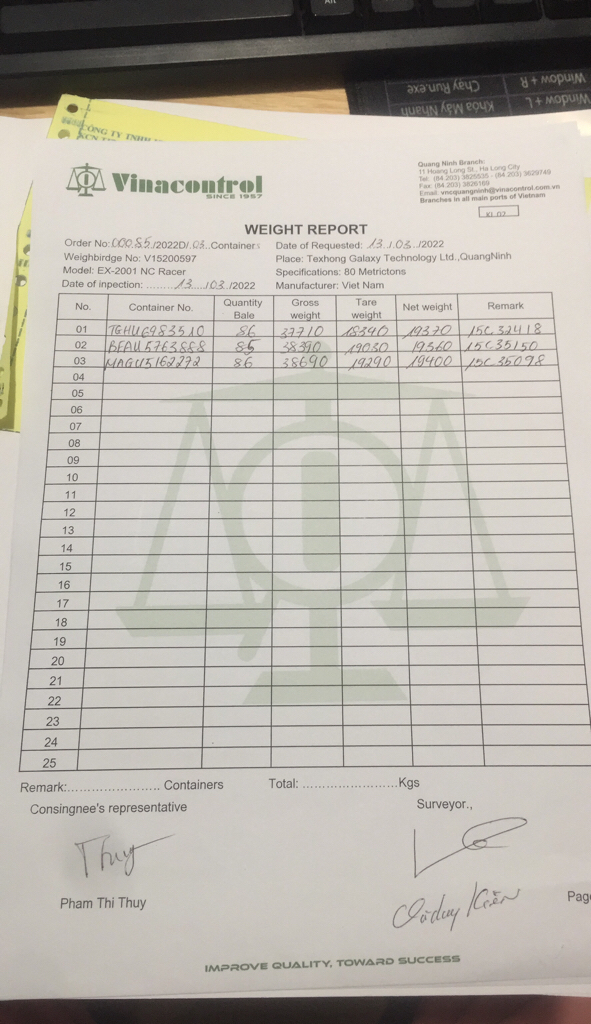 CÔNG TY TNHH
Window + R Chạy Run.exe
Window + L Khóa Máy Nhanh
Vinacontrol
SINCE 1957
Quang Ninh Branch:
11 Hoang Long St., Ha Long City
Tel: (84.203) 3825535 - (84.203) 3629749
Fax: (84.203) 3826169
Email: vncquangninh@vinacontrol.com.vn
Branches in all main ports of Vietnam
KL 02
WEIGHT REPORT
Order No: 00085/2022D/.03..Containers Date of Requested: 13./03../2022
Weighbirdge No: V15200597 Place: Texhong Galaxy Technology Ltd.,QuangNinh
Model: EX-2001 NC Racer Specifications: 80 Metrictons
Date of inpection: .........13..../03./2022 Manufacturer: Viet Nam
No. Container No. Quantity Bale Gross weight Tare weight Net weight Remark
01 TGHU6983510 86 37710 18340 19370 15C 32418
02 BEAU5763888 85 38390 19030 19360 15C 35150
03 MAGU5162272 86 38690 19290 19400 15C 35098
04
05
06
07
08
09
10
11
12
13
14
15
16
17
18
19
20
21
22
23
24
25
Remark:...................... Containers Total: .......................Kgs
Consingnee's representative Surveyor.,
Thuy
Pham Thi Thuy
Page
IMPROVE QUALITY, TOWARD SUCCESS